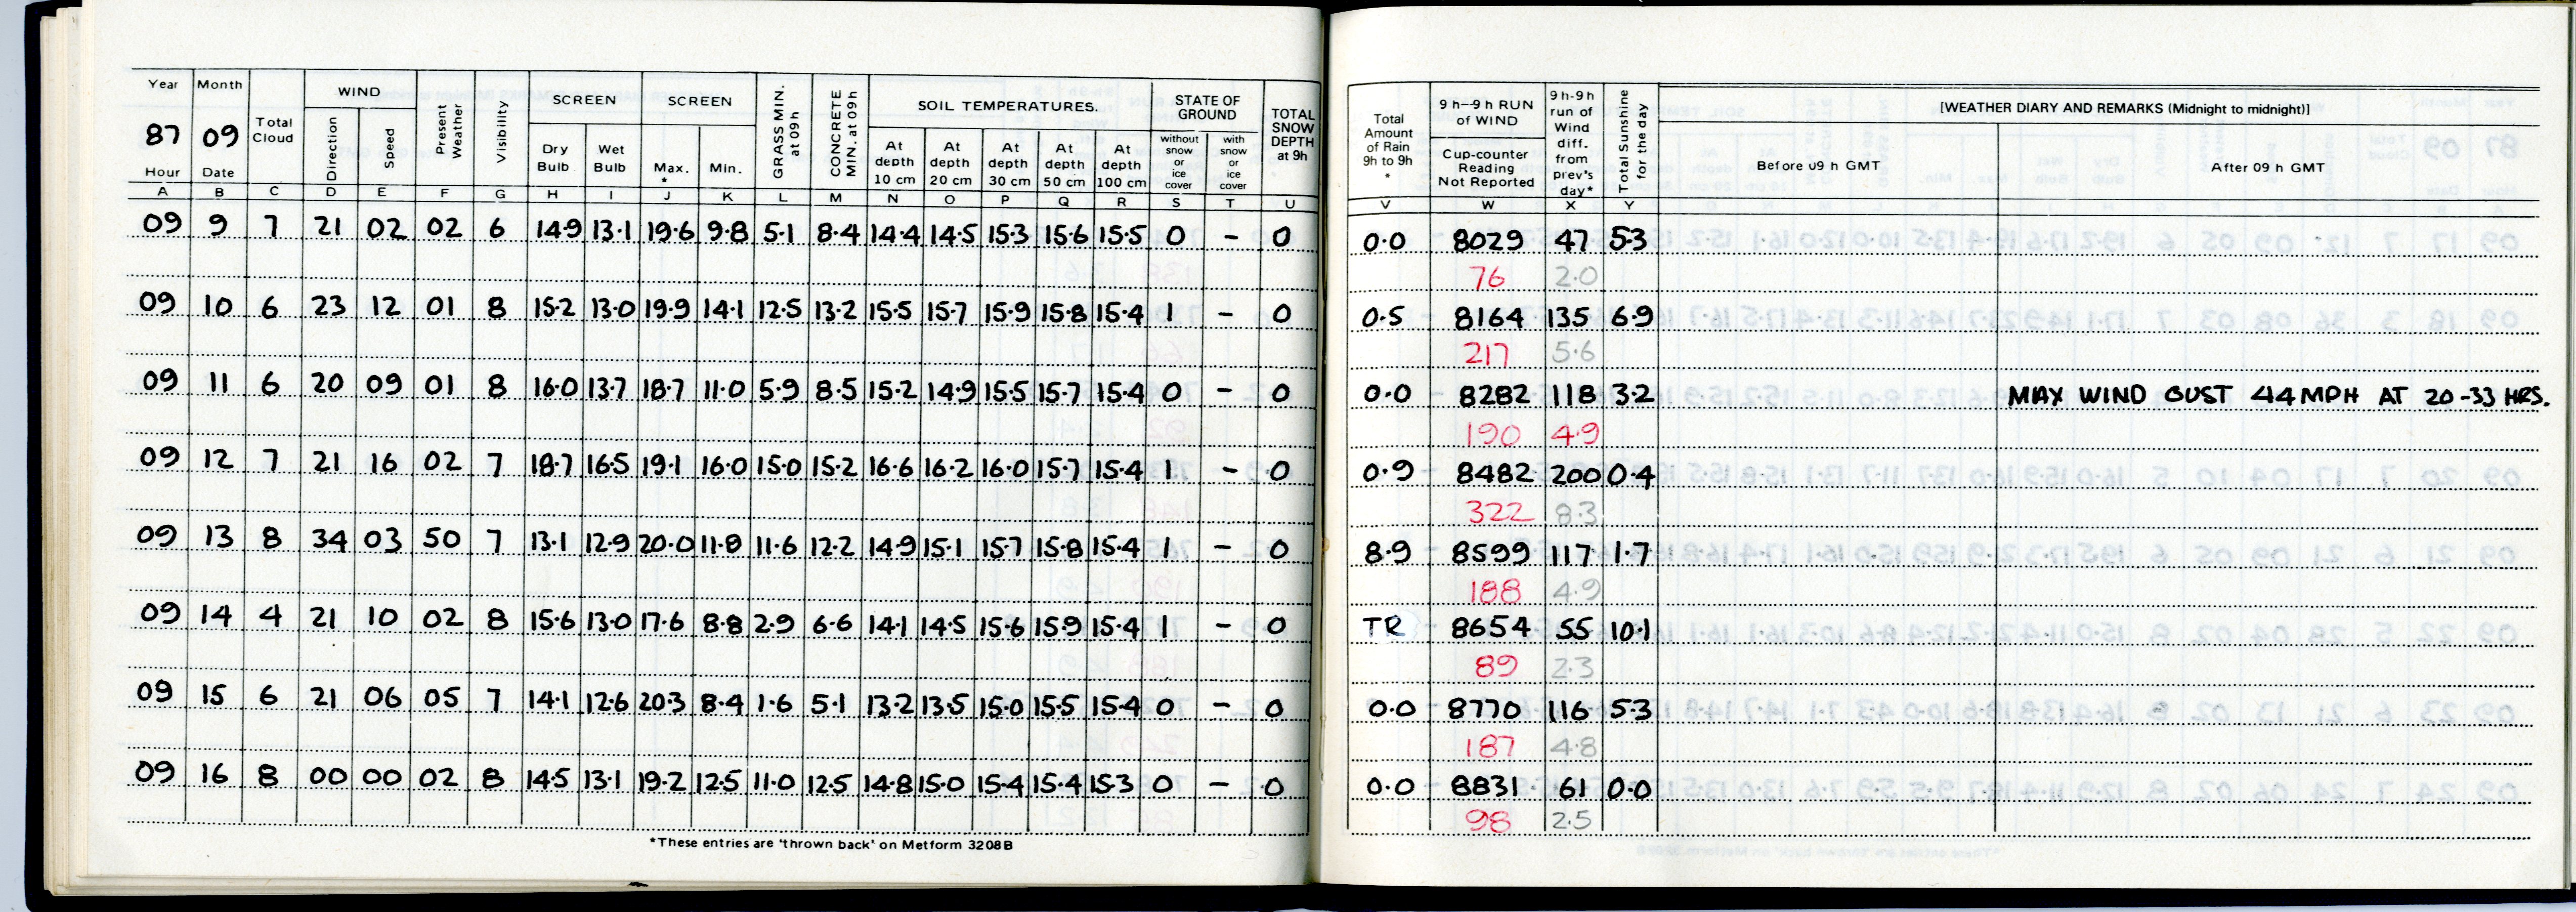 Year Month Total Cloud WIND Present Weather Visibility SCREEN SCREEN GRASS MIN. at 09h CONCRETE MIN. at 09h SOIL TEMPERATURES. STATE OF GROUND TOTAL SNOW DEPTH at 9h
87 09 Direction Speed Dry Bulb Wet Bulb Max. * Min. At depth 10 cm At depth 20 cm At depth 30 cm At depth 50 cm At depth 100 cm without snow or ice cover with snow or ice cover
Hour Date
A B C D E F G H I J K L M N O P Q R S T U
09 9 7 21 02 02 6 14.9 13.1 19.6 9.8 5.1 8.4 14.4 14.5 15.3 15.6 15.5 0 - 0
09 10 6 23 12 01 8 15.2 13.0 19.9 14.1 12.5 13.2 15.5 15.7 15.9 15.8 15.4 1 - 0
09 11 6 20 09 01 8 16.0 13.7 18.7 11.0 5.9 8.5 15.2 14.9 15.5 15.7 15.4 0 - 0
09 12 7 21 16 02 7 18.7 16.5 19.1 16.0 15.0 15.2 16.6 16.2 16.0 15.7 15.4 1 - 0
09 13 8 34 03 50 7 13.1 12.9 20.0 11.8 11.6 12.2 14.9 15.1 15.7 15.8 15.4 1 - 0
09 14 4 21 10 02 8 15.6 13.0 17.6 8.8 2.9 6.6 14.1 14.5 15.6 15.9 15.4 1 - 0
09 15 6 21 06 05 7 14.1 12.6 20.3 8.4 1.6 5.1 13.2 13.5 15.0 15.5 15.4 0 - 0
09 16 8 00 00 02 8 14.5 13.1 19.2 12.5 11.0 12.5 14.8 15.0 15.4 15.4 15.3 0 - 0
*These entries are 'thrown back' on Metform 3208B
Total Amount of Rain 9h to 9h * 9 h—9 h RUN of WIND Cup-counter Reading Not Reported 9 h-9h run of Wind diff. from prev's day* Total Sunshine for the day [WEATHER DIARY AND REMARKS (Midnight to midnight)]
Before 09 h GMT After 09 h GMT
V W X Y
0.0 8029 47 5.3
76 2.0
0.5 8164 135 6.9
217 5.6
0.0 8282 118 3.2 MAX WIND GUST 44 MPH AT 20-33 HRS.
190 4.9
0.9 8482 200 0.4
322 8.3
8.9 8599 117 1.7
188 4.9
TR 8654 55 10.1
89 2.3
0.0 8770 116 5.3
187 4.8
0.0 8831 61 0.0
98 2.5